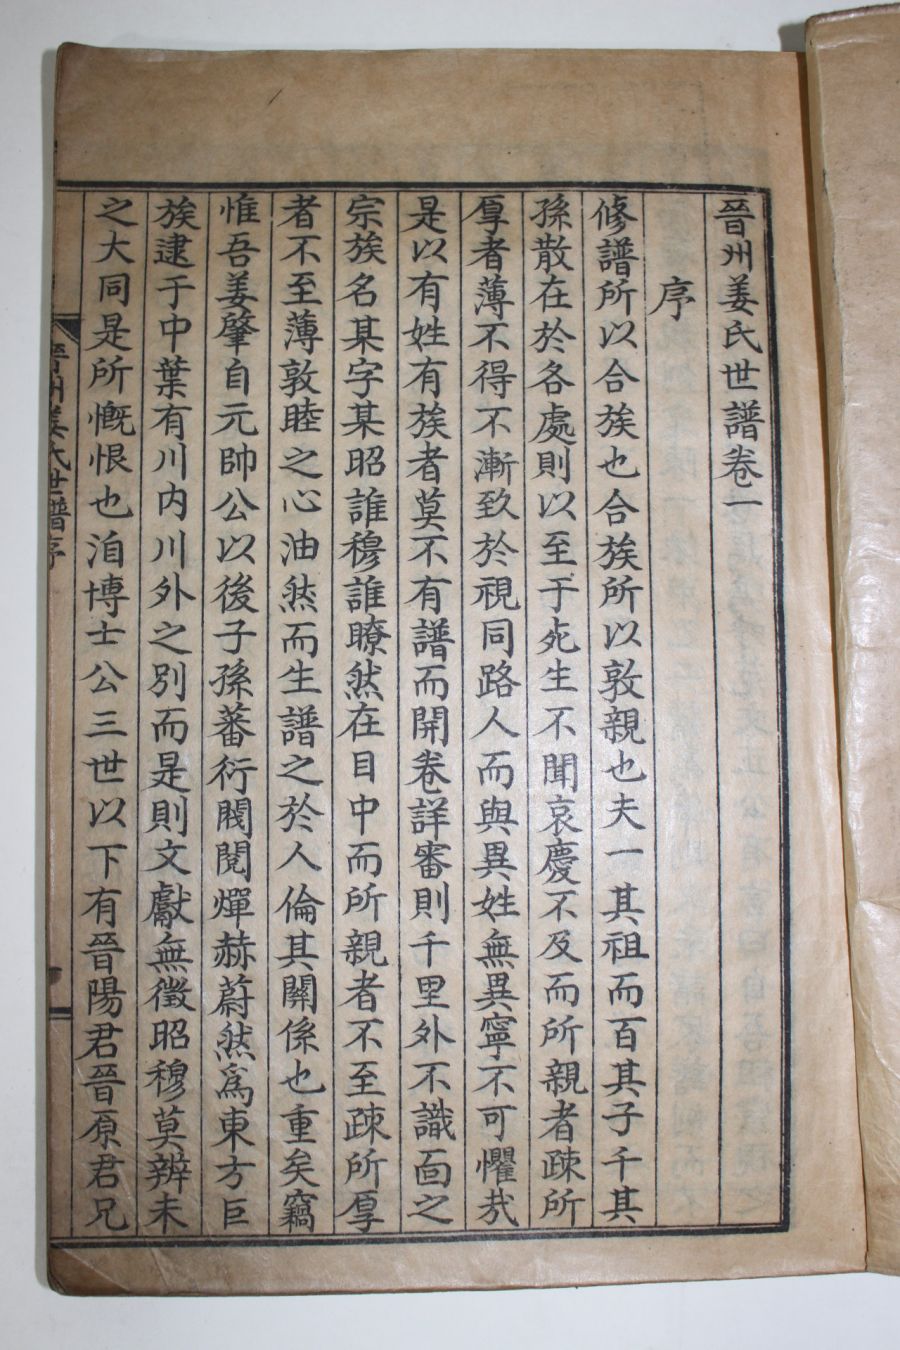 晉州姜氏世譜卷一
序
修譜所以合族也合族所以敦親也夫一其祖而百其子千其
孫散在於各處則以至于死生不聞哀慶不及而所親者疎所
厚者薄不得不漸致於視同路人而與異姓無異寧不可懼㢤
是以有姓有族者莫不有譜而開卷詳審則千里外不識面之
宗族名某字某昭誰穆誰瞭然在目中而所親者不至疎所厚
者不至薄敦睦之心油然而生譜之於人倫其關係也重矣竊
惟吾姜肇自元帥公以後子孫蕃衍閥閱燀赫蔚然爲東方巨
族逮于中葉有川内川外之別而是則文獻無徵昭穆莫辨未
之大同是所慨恨也洎博士公三世以下有晉陽君晉原君兄
晉州姜氏世譜序